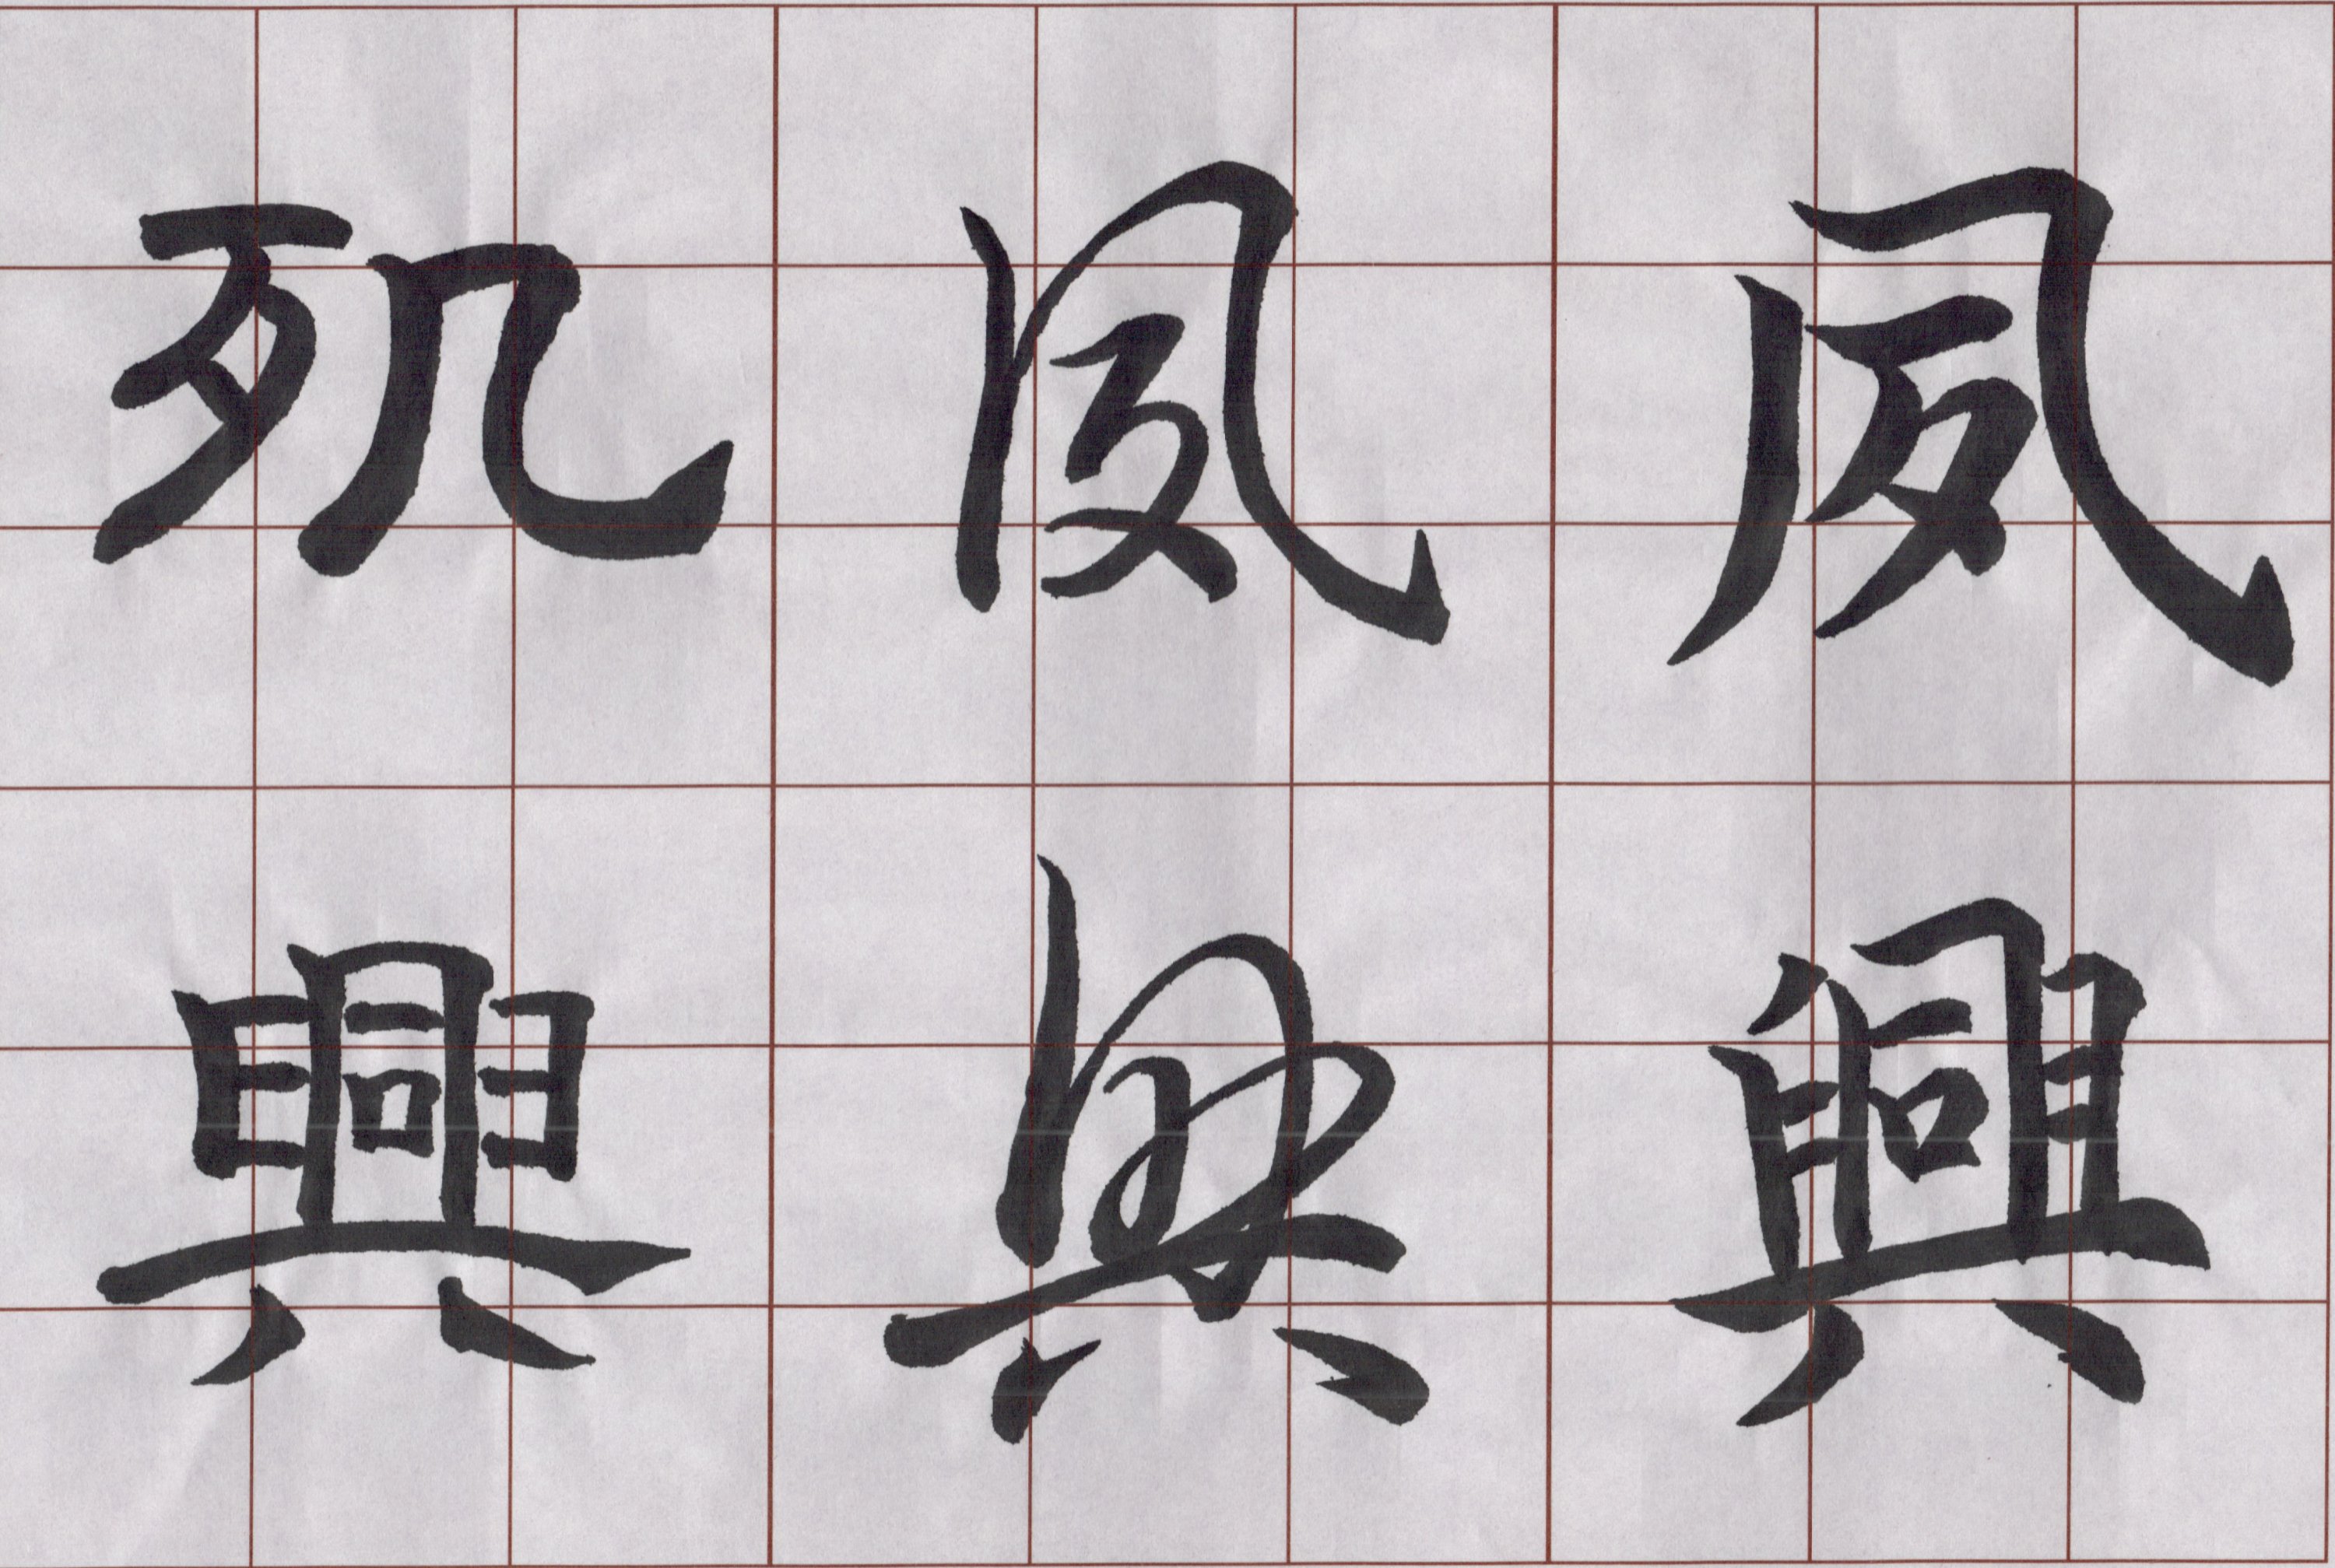 夙興
夙興
夙興